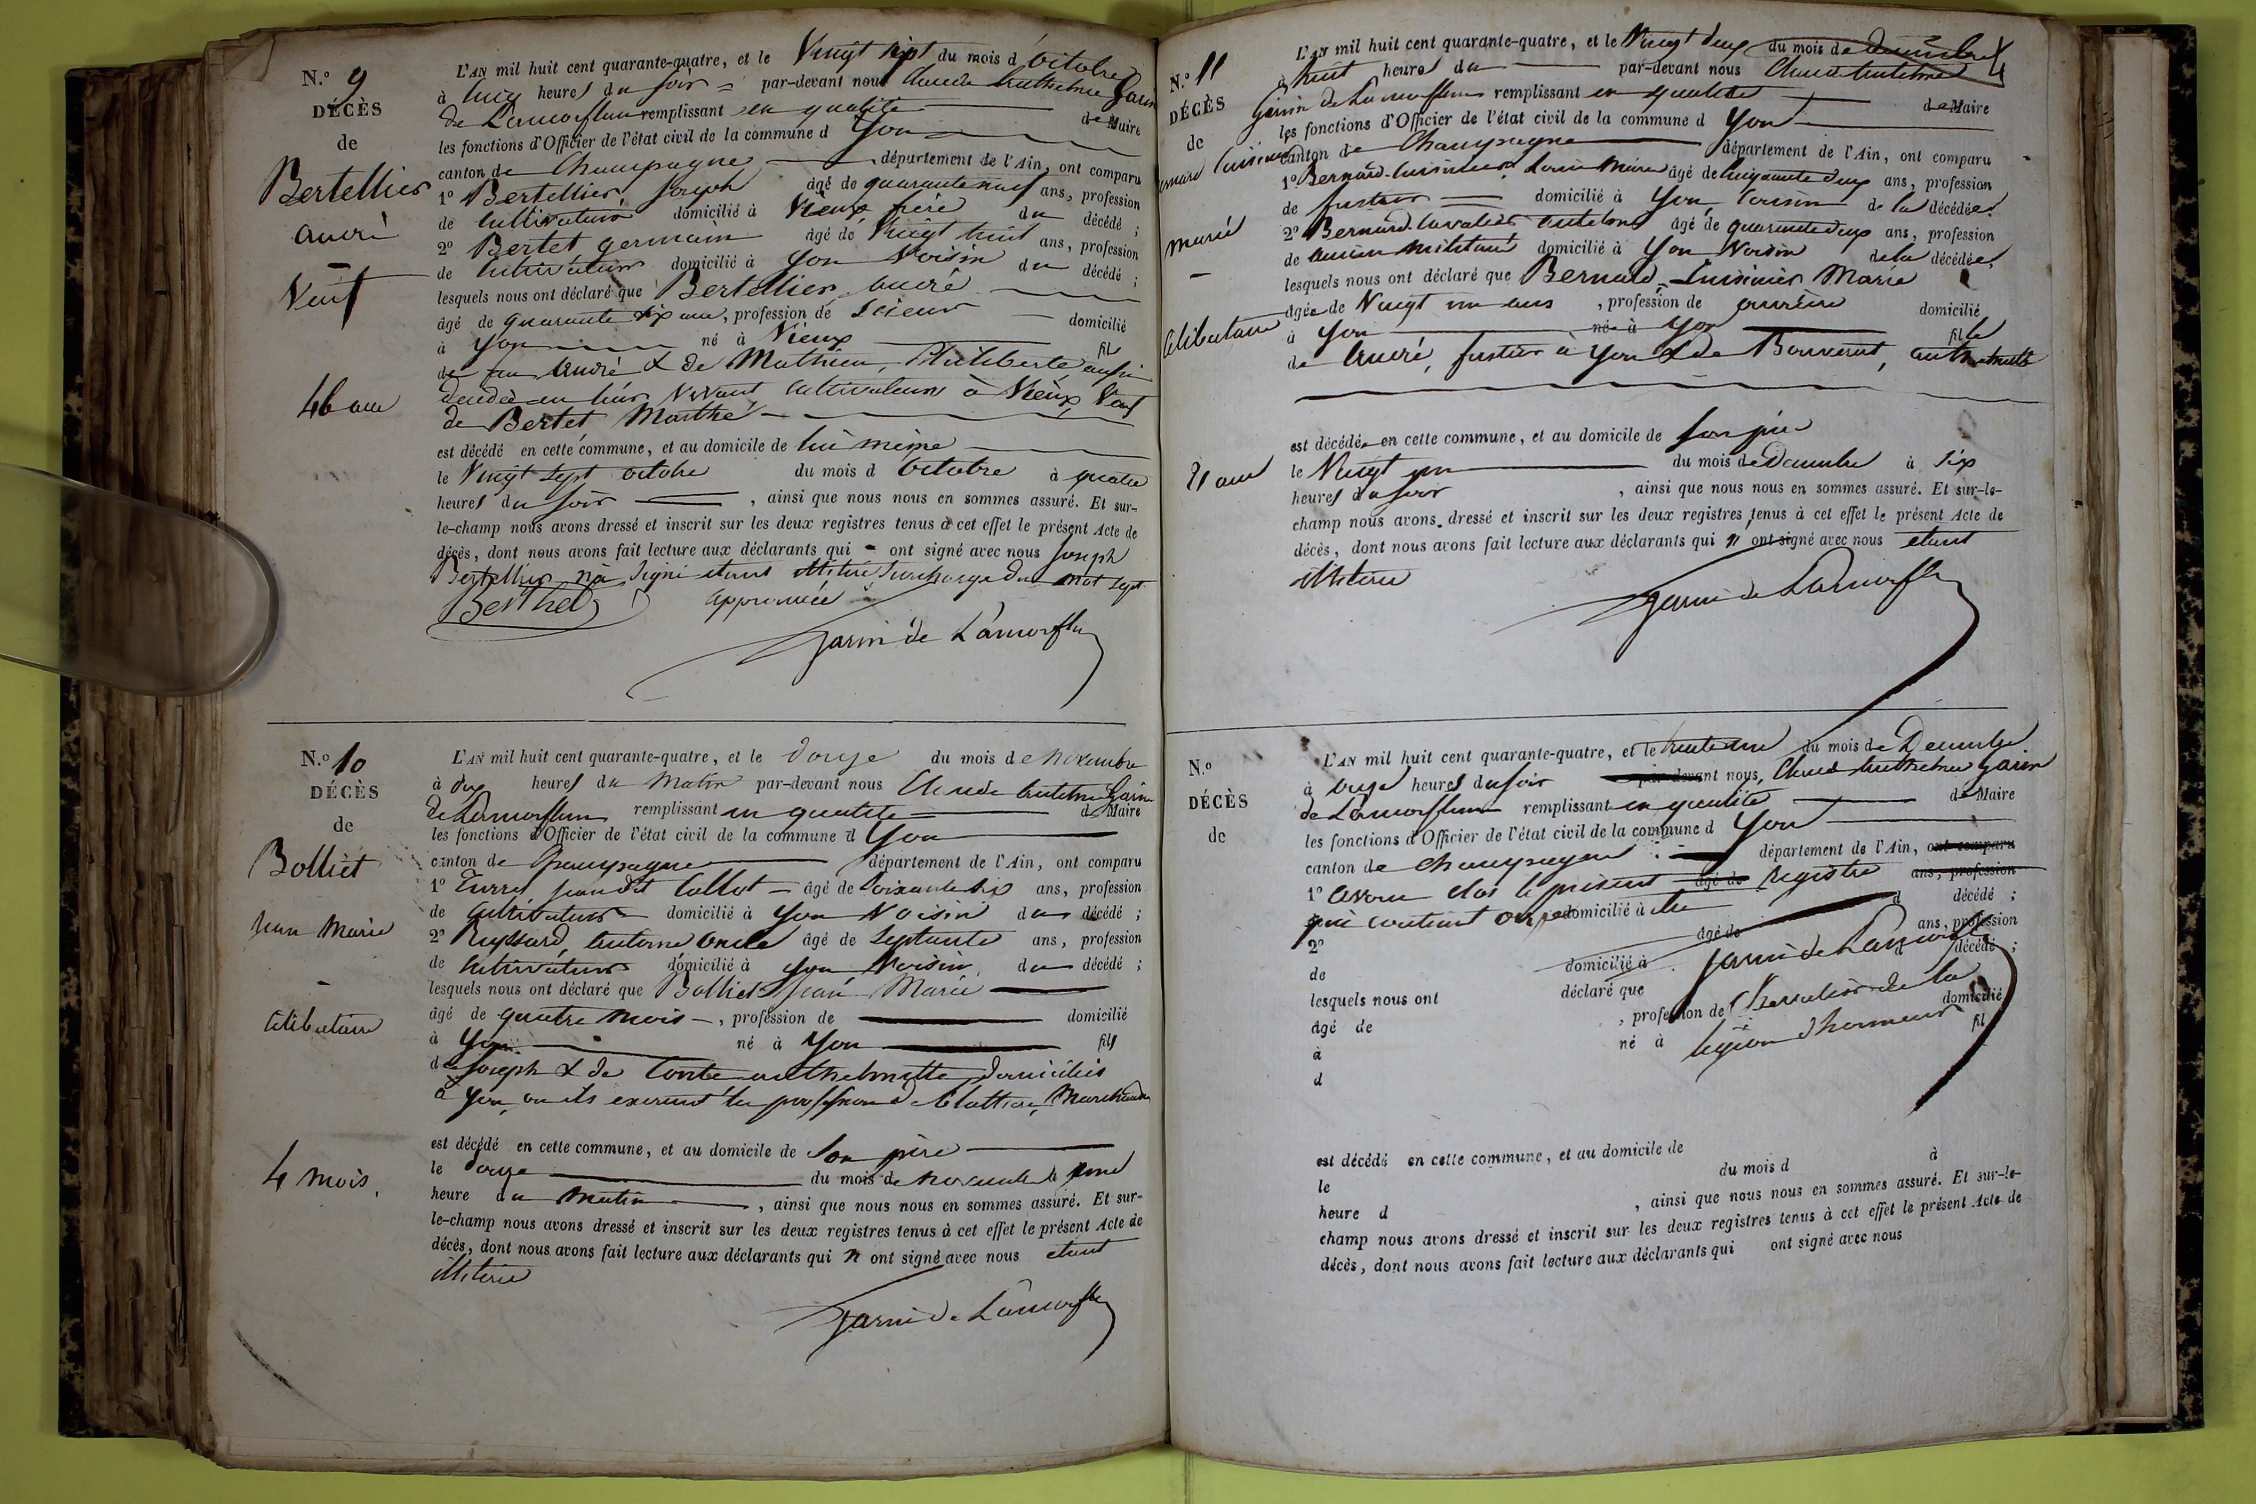 N.º 9
DÉCÈS
de
Bertellier
André
Veuf
46 ans
L'AN mil huit cent quarante-quatre, et le Vingt sept du mois d'Octobre
à heures du soir par-devant nous Claude Anthelme Garin
de Lamorflan remplissant en qualité de Maire
les fonctions d'Officier de l'état civil de la commune d Yon
canton de Champagne département de l'Ain, ont comparu
1º Bertellier Joseph âgé de quarante neuf ans, profession
de cultivateur domicilié à Vieux frère du décédé ;
2º Bertet germain âgé de Vingt huit ans, profession
de cultivateur domicilié à Yon Voisin du décédé ;
lesquels nous ont déclaré que Bertellier André
âgé de quarante six ans, profession de Scieur domicilié
à Yon né à Vieux fil
de feu André & de Mathieu, Philiberte aussi
décédée en leur Vivant cultivateurs à Vieux Veuf
de Bertet Marthe
est décédé en cette commune, et au domicile de lui même
le Vingt sept octobre du mois d Octobre à quatre
heures du soir , ainsi que nous nous en sommes assuré. Et sur-
le-champ nous avons dressé et inscrit sur les deux registres tenus à cet effet le présent Acte de
décès, dont nous avons fait lecture aux déclarants qui ont signé avec nous Joseph
Bertellier n'a signé étant illitéré Surcharge du mot sept
approuvée
Berthet
Garin de Lamorflan
N.º 10
DÉCÈS
de
Bolliet
Jean Marie
Célibataire
4 mois.
L'AN mil huit cent quarante-quatre, et le douze du mois de novembre
à dix heures du Matin par-devant nous Claude Anthelme Garin
de Lamorflan remplissant en qualité de Maire
les fonctions d'Officier de l'état civil de la commune d Yon
canton de Champagne département de l'Ain, ont comparu
1º jean dit Collot âgé de Soixante six ans, profession
de cultivateur domicilié à Yon Voisin du décédé ;
2º Antoine âgé de Septante ans, profession
de cultivateur domicilié à Yon Voisin du décédé ;
lesquels nous ont déclaré que Bolliet Jean Marie
âgé de quatre mois , profession de domicilié
à Yon né à Yon fils
de Joseph & de Conte anthelmette domiciliés
à Yon, ou ils exercent la profession de Marchands
est décédé en cette commune, et au domicile de Son père
le douze du mois de novembre à une
heure du Matin , ainsi que nous nous en sommes assuré. Et sur-
le-champ nous avons dressé et inscrit sur les deux registres tenus à cet effet le présent Acte de
décès, dont nous avons fait lecture aux déclarants qui n ont signé avec nous étant
illitéré
Garin de Lamorflan
N.º 11
DÉCÈS
de
Bernard Cuisinier
Marié
Célibataire
21 ans
L'AN mil huit cent quarante-quatre, et le Vingt deux du mois de décembre
à huit heures du par-devant nous Claude Anthelme
Garin de Lamorflan remplissant en qualité de Maire
les fonctions d'Officier de l'état civil de la commune d Yon
canton de Champagne département de l'Ain, ont comparu
1º Bernard-Cuisinier Louis Marie âgé de Cinquante deux ans, profession
de fustier domicilié à Yon, Cousin de la décédée ;
2º Bernard-Cavalier Anthelme âgé de quarante deux ans, profession
de ancien Militaire domicilié à Yon Voisin de la décédée ;
lesquels nous ont déclaré que Bernard-Cuisinier Marie
âgée de Vingt un ans , profession de ouvrière domicilié
à Yon né à Yon fille
de André, fustier à Yon & de Bouverat, anthelmette
est décédé en cette commune, et au domicile de son père
le Vingt un du mois de Décembre à six
heures du soir , ainsi que nous nous en sommes assuré. Et sur-le-
champ nous avons dressé et inscrit sur les deux registres tenus à cet effet le présent Acte de
décès, dont nous avons fait lecture aux déclarants qui n ont signé avec nous étant
illitéré
Garin de Lamorflan
N.º
DÉCÈS
de
L'AN mil huit cent quarante-quatre, et le trente un du mois de Décembre
à onze heures du soir par-devant nous, Claude Anthelme Garin
de Lamorflan remplissant en qualité de Maire
les fonctions d'Officier de l'état civil de la commune d Yon
canton de Champagne département de l'Ain, ont comparu
1º avons clos le présent âgé de registre ans, profession
qui contient onze domicilié à d décédé ;
2º âgé de ans, profession
de domicilié à d décédé ;
Garin de Lamorflan
lesquels nous ont déclaré que
âgé de , profession de Chevalier de la domicilié
à né à légion d'honneur fil
d
est décédé en cette commune, et au domicile de
le du mois d à
heure d , ainsi que nous nous en sommes assuré. Et sur-le-
champ nous avons dressé et inscrit sur les deux registres tenus à cet effet le présent Acte de
décès, dont nous avons fait lecture aux déclarants qui ont signé avec nous